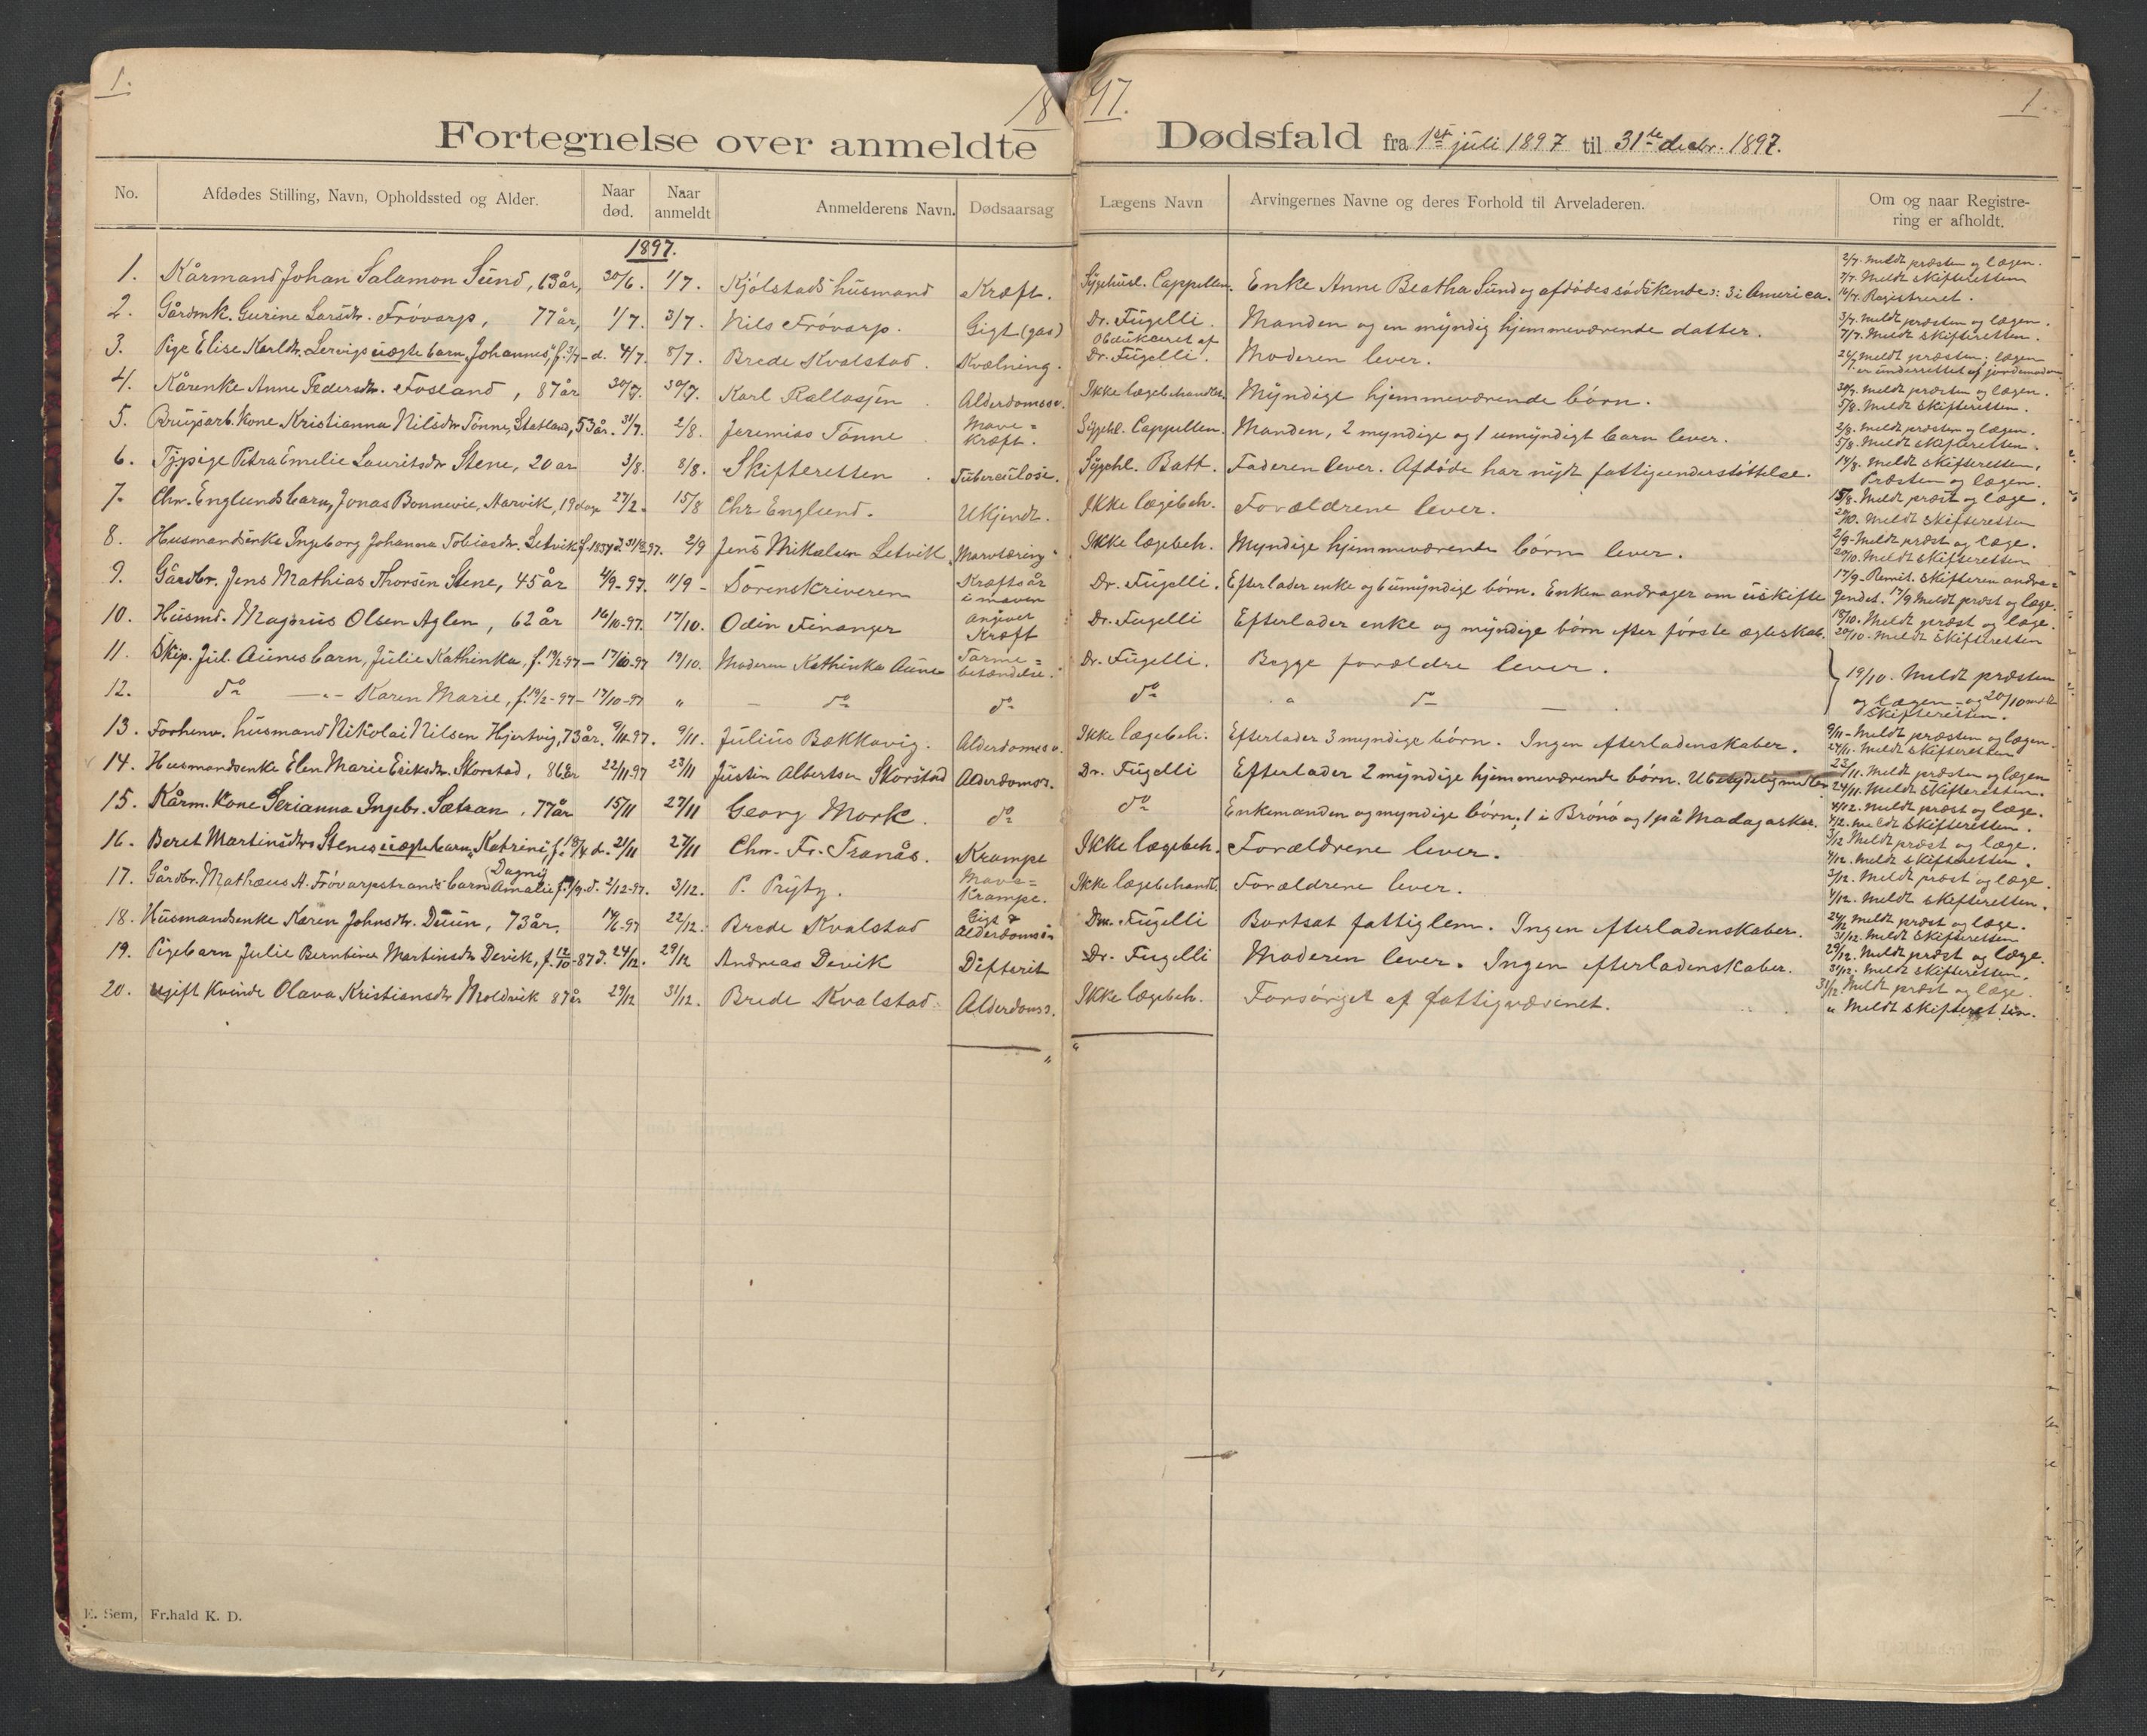 1.
18 97.
1
Fortegnelse over anmeldte Dødsfald fra 1st juli 1897 til 31te decbr. 1897.
No. Afdødes Stilling, Navn, Opholdssted og Alder. Naar død. Naar anmeldt Anmelderens Navn. Dødsaarsag Lægens Navn Arvingernes Navne og deres Forhold til Arveladeren. Om og naar Registrering er afholdt.
1897.
1. Kårmand Johan Salamon Sund, 63 år, 30/6. 1/7. Kjølstads husmand Kræft. Sygehusl. Cappelen. Enke Anne Beatha Sund og afdødes södskende: 3 i America. 2/7. Meldt præsten og lægen. 7/7. Meldt skifteretten 14/7. Registreret.
2. Gårdmk. Gurine Larsdtr. Frövarp, 77 år, 1/7. 3/7. Nils Frövarp. Gigt (gas) Dr. Fugelli. Manden og en myndig hjemmeværende datter. 3/7. Meldt præsten og lægen. 7/7. Meldt skifteretten.
3. Pige Elise Karldtr. Servigs uægte barn, "Johannes" d. 4/7. 8/7. Brede Kvalstad Kvælning. Obduceret af Dr. Fugelli. Moderen lever. Meldt præsten; lægen er underrettet af jordemoderen
4. Kårenke Anne Pedersdtr. Fosland, 87 år 30/7. 30/7. Karl Rallasjen Alderdomssv. Ikke lægebehandlet. Myndige hjemmeværende börn. 30/7. Meldt præsten og lægen. 5/8. Meldt skifteretten.
5. Brugsarb. Kone Kristianna Nilsdtr Tönne, Statland, 53 år. 31/7. 2/8. Jeremias Tönne Mave=kræft. Sygehl. Cappelen. Manden, 2 myndige og 1 umyndigt barn lever. 2/8. Meldt præsten og lægen. 5/8. Meldt skifteretten.
6. Tjpige Petra Emelie Lauritsdtr Stene, 20 år 3/8. 8/8. Skifteretten Tuberculose. Sygehl. Batt. Faderen lever. Afdöde har nydt fattigunderstöttelse. 14/8. Meldt skifteretten, Præsten og lægen.
7. Chr. Englunds barn, Jonas Bonnevie, Aarvik, 19 dage 27/2. 15/8 Chr. Englund. Ukjendt. Ikke lægebeh. Forældrene lever. 15/8. Meldt præst og læge. 20/10. Meldt skifteretten
8. Husmandsenke Ingeborg Johanna Tobiasdtr. Setvik f. 1834 97. 2/9 Jens Mikalsen Setvik Marvtæring Ikke lægebeh. Myndige hjemmeværende börn lever. 2/9 Meldt præst og læge. 20/10. Meldt skifteretten
9. Gårdbr. Jens Mathias Thorsen Stene, 45 år 4/9-97. 11/9 - Sorenskriveren Kræftsår i maven Dr. Fugelli. Efterlader enke og 6 umyndige börn. Enken andrager om uskifte 17/9. Remit. skifteren andragendet. 17/9 Meldt præst og læge.
10. Husmd. Magnus Olsen Aglen, 62 år 16/10-97. 17/10. Odin Finanger angiver Kræft Dr. Fugelli Efterlader enke og myndige börn efter förste ægteskab. 18/10. Meldt præst og læge. 20/10. Meldt skifteretten
11. Skip. Jul. Aunes barn, Julie Kathinka, f. 19/2-97 - 17/10-97 19/10. Moderen Kathinka Aune Tarme=betændelse. Dr. Fugelli. Begge forældre lever. 19/10. Meldt præsten og lægen og 20/10 meldt skifteretten.
12. do -"- Karen Marie, f. 19/2-97 - 17/10-97 " - do do do " do
13. Forhenv. husmand Nikolai Nilsen Hjertvig, 73 år. 9/11-97. 9/11. Julius Bækkavig. Alderdomssv. Ikke lægebeh. Efterlader 3 myndige börn. Ingen efterladenskaber. 9/11-Meldt præsten og lægen. 24/11. Meldt skifteretten
14. Husmandsenke Elen Marie Eriksdtr. Skorstad, 86 år 22/11-97 23/11 Justin Albertsen Skorstad Alderdomss. Dr. Fugelli Efterlader 2 myndige hjemmeværende börn. Ubetydelig midler. 23/11. Meldt præsten og lægen 24/11. Meldt skifteretten.
15. Kårm. Kone Serianna Ingebr. Sætran. 77 år 15/11 27/11 Georg Mork. do do Enkemanden og myndige börn; 1 i Brönö og 1 på Madagaskar. 4/12. Meldt præst og læge. 4/12. Meldt skifteretten.
16. Beret Martinsdtrs Stenes uægte barn, "Katrine", d. 21/11 27/11 Chr. Fr. Tranås. Krampe Ikke lægebeh. Forældrene lever. 3/12 Meldt præst og læge. 4/12. Meldt skifteretten.
17. Gårdbr. Mathæus A. Frövarpstrands barn Dagny Amalie d. 2/12-97. 3/12. P. Pryty. Mave=Krampe. Ikke lægebehandlt. Forældrene lever. 3/12. Meldt præst og læge. 4/12. Meldt skifteretten.
18. Husmandsenke Karen Johnsdtr. Duun, 73 år. 14/6-97 22/12. Brede Kvalstad Gigt & Alderdoms Dr. Fugelli Bortsat fattiglem. Ingen efterladenskaber. 24/12 Meldt præst og læge. 31/12. Meldt skifteretten
19. Pigebarn Julie Berntine Martinsdtr Devik, f. 12/10-87 d. 24/12. 29/12 Andreas Devik Difterit Dr. Fugelli Moderen lever. Ingen efterladenskaber. 29/12. Meldt præst og læge. 31/12. Meldt skifteretten.
20. ugift Kvinde Olava Kristiansdtr Moldvik 87 år 29/12 31/12. Brede Kvalstad Alderdomss. Ikke lægebeh. Forsörget af fattigvæsenet. 31/12. Meldt præst og læge. " Meldt skifteretten.
E. Sem, Fr.hald K. D.